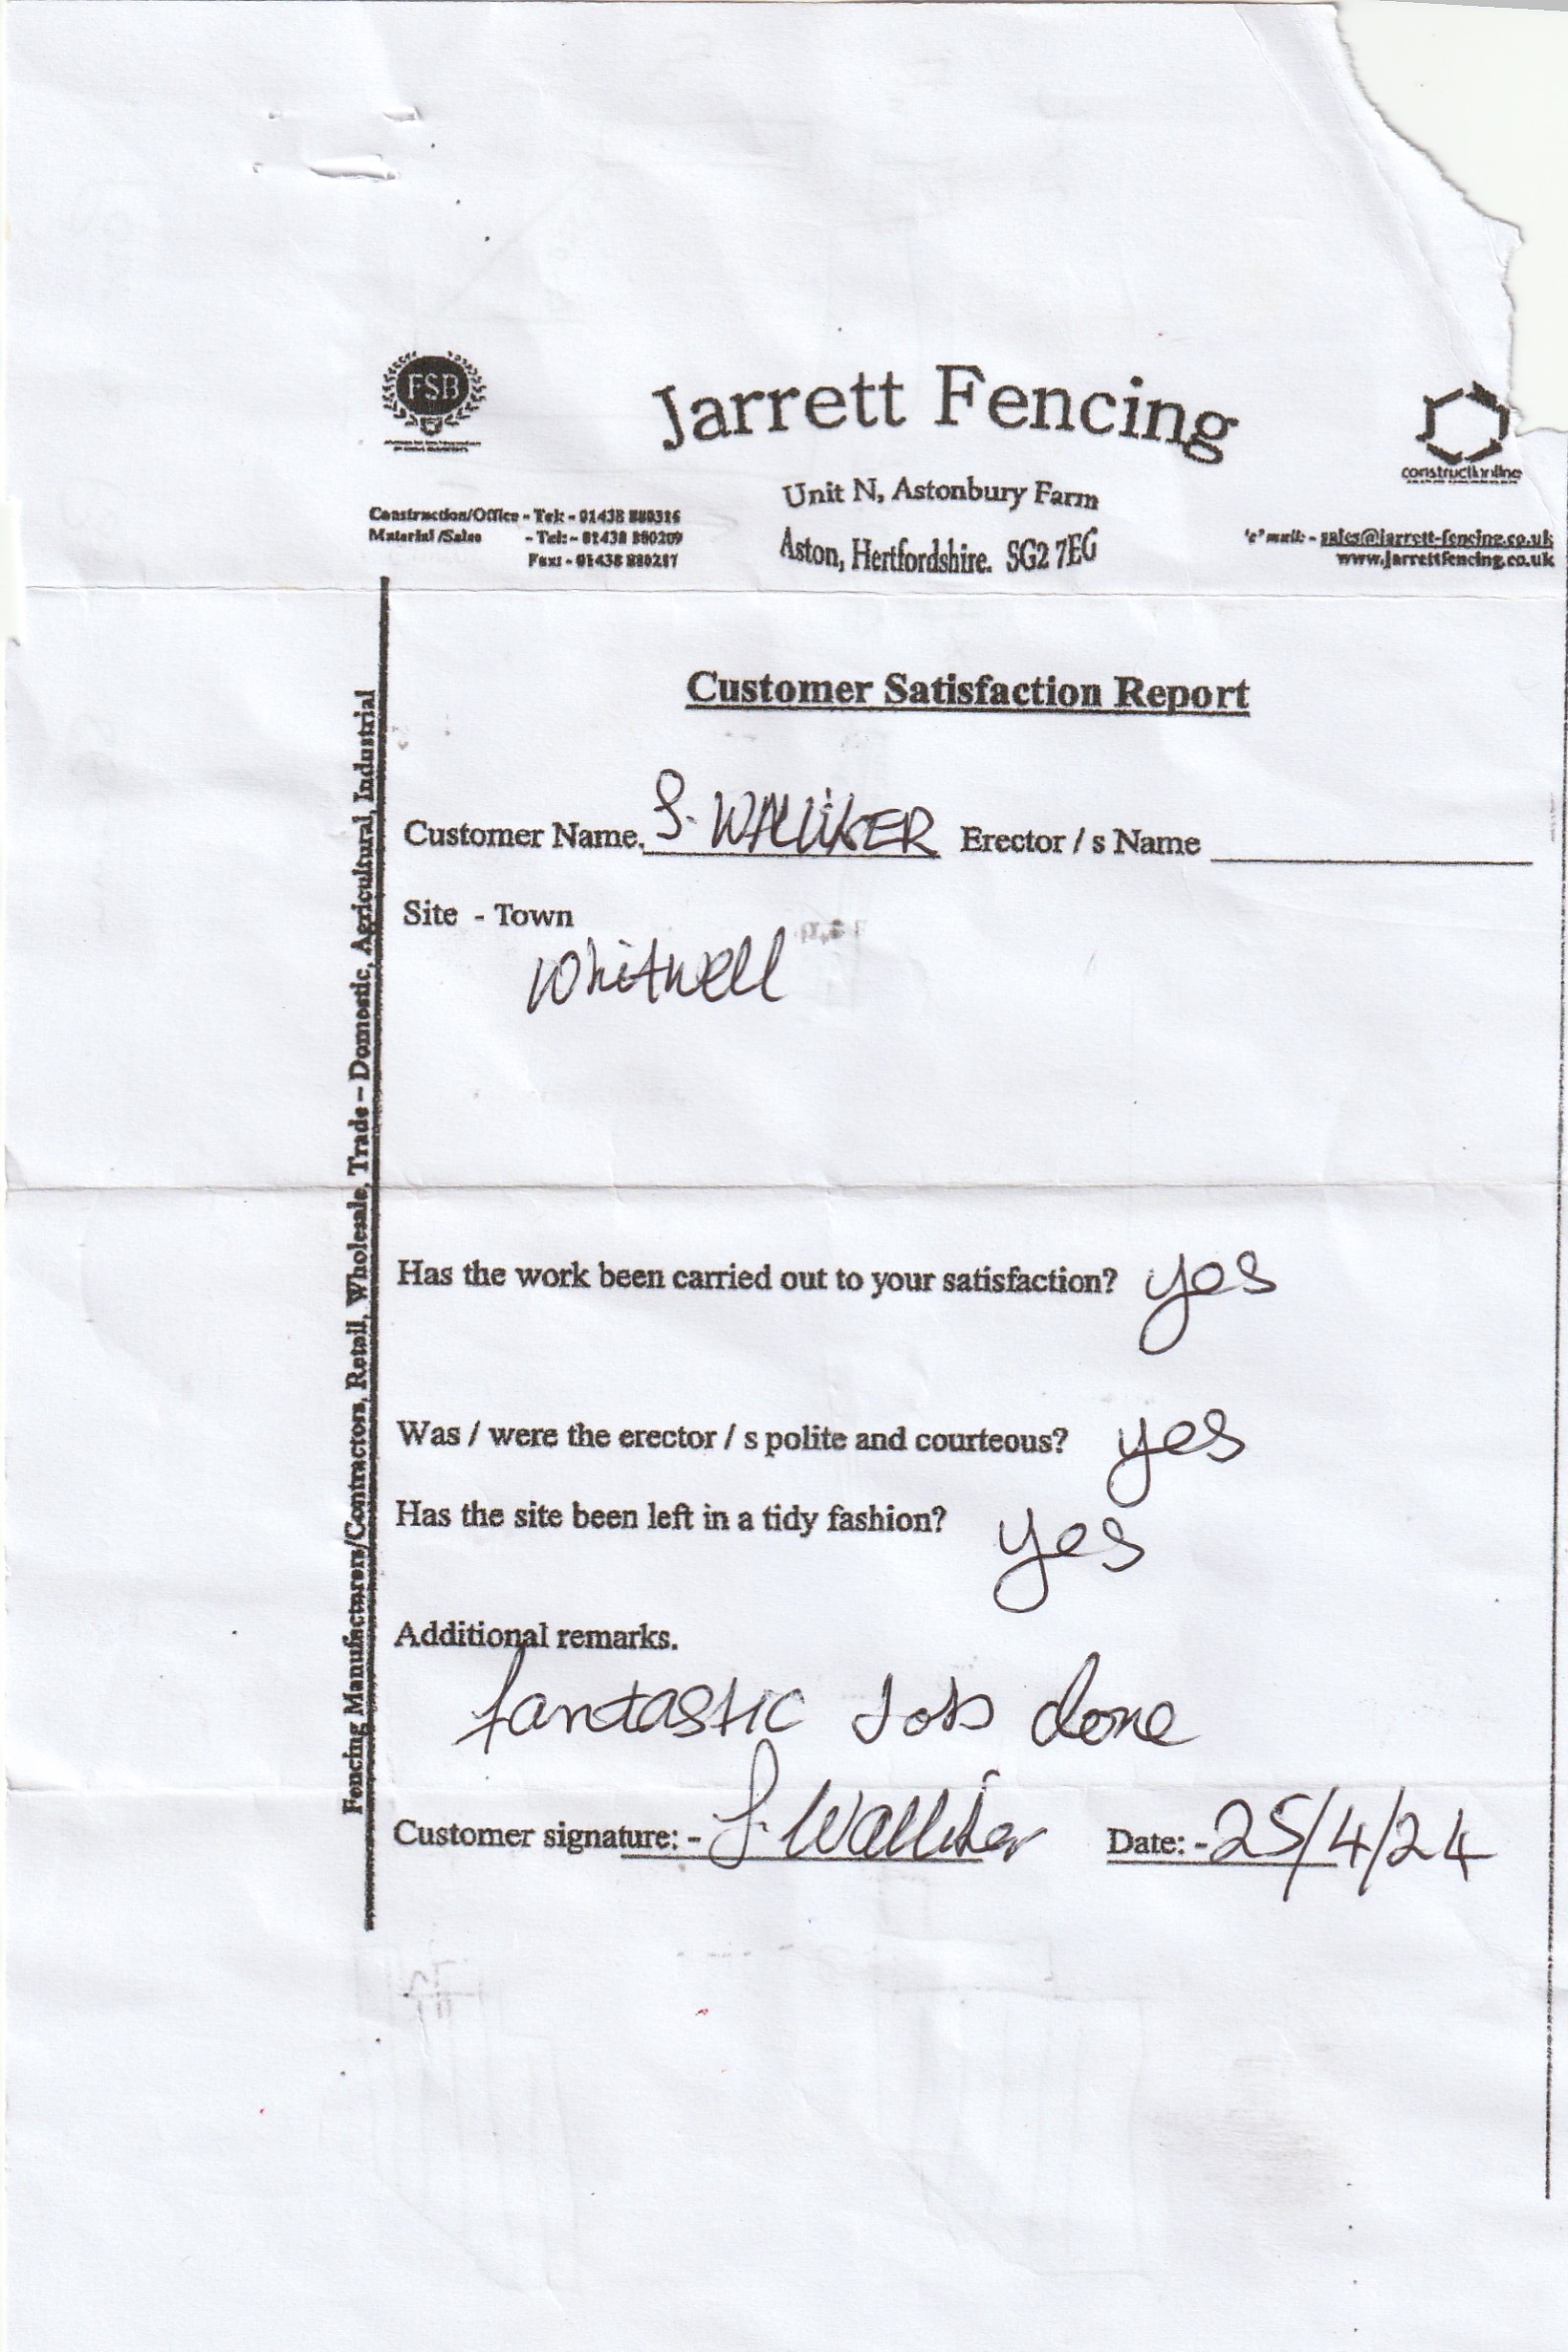 FSB
Jarrett Fencing
constructionline
Unit N, Astonbury Farm
Aston, Hertfordshire. SG2 7EG
Construction/Office - Tel: - 01438 880316
Material /Sales - Tel: - 01438 880209
Fax: - 01438 880217
'e' mail: - sales@jarrett-fencing.co.uk
www.jarrettfencing.co.uk
Fencing Manufacturers/Contractors, Retail, Wholesale, Trade – Domestic, Agricultural, Industrial
Customer Satisfaction Report
Customer Name. S. WALLIKER Erector / s Name
Site - Town
Whitwell
Has the work been carried out to your satisfaction? yes
Was / were the erector / s polite and courteous? yes
Has the site been left in a tidy fashion? yes
Additional remarks.
fantastic Job done
Customer signature: - S. Walliker Date: - 25/4/24